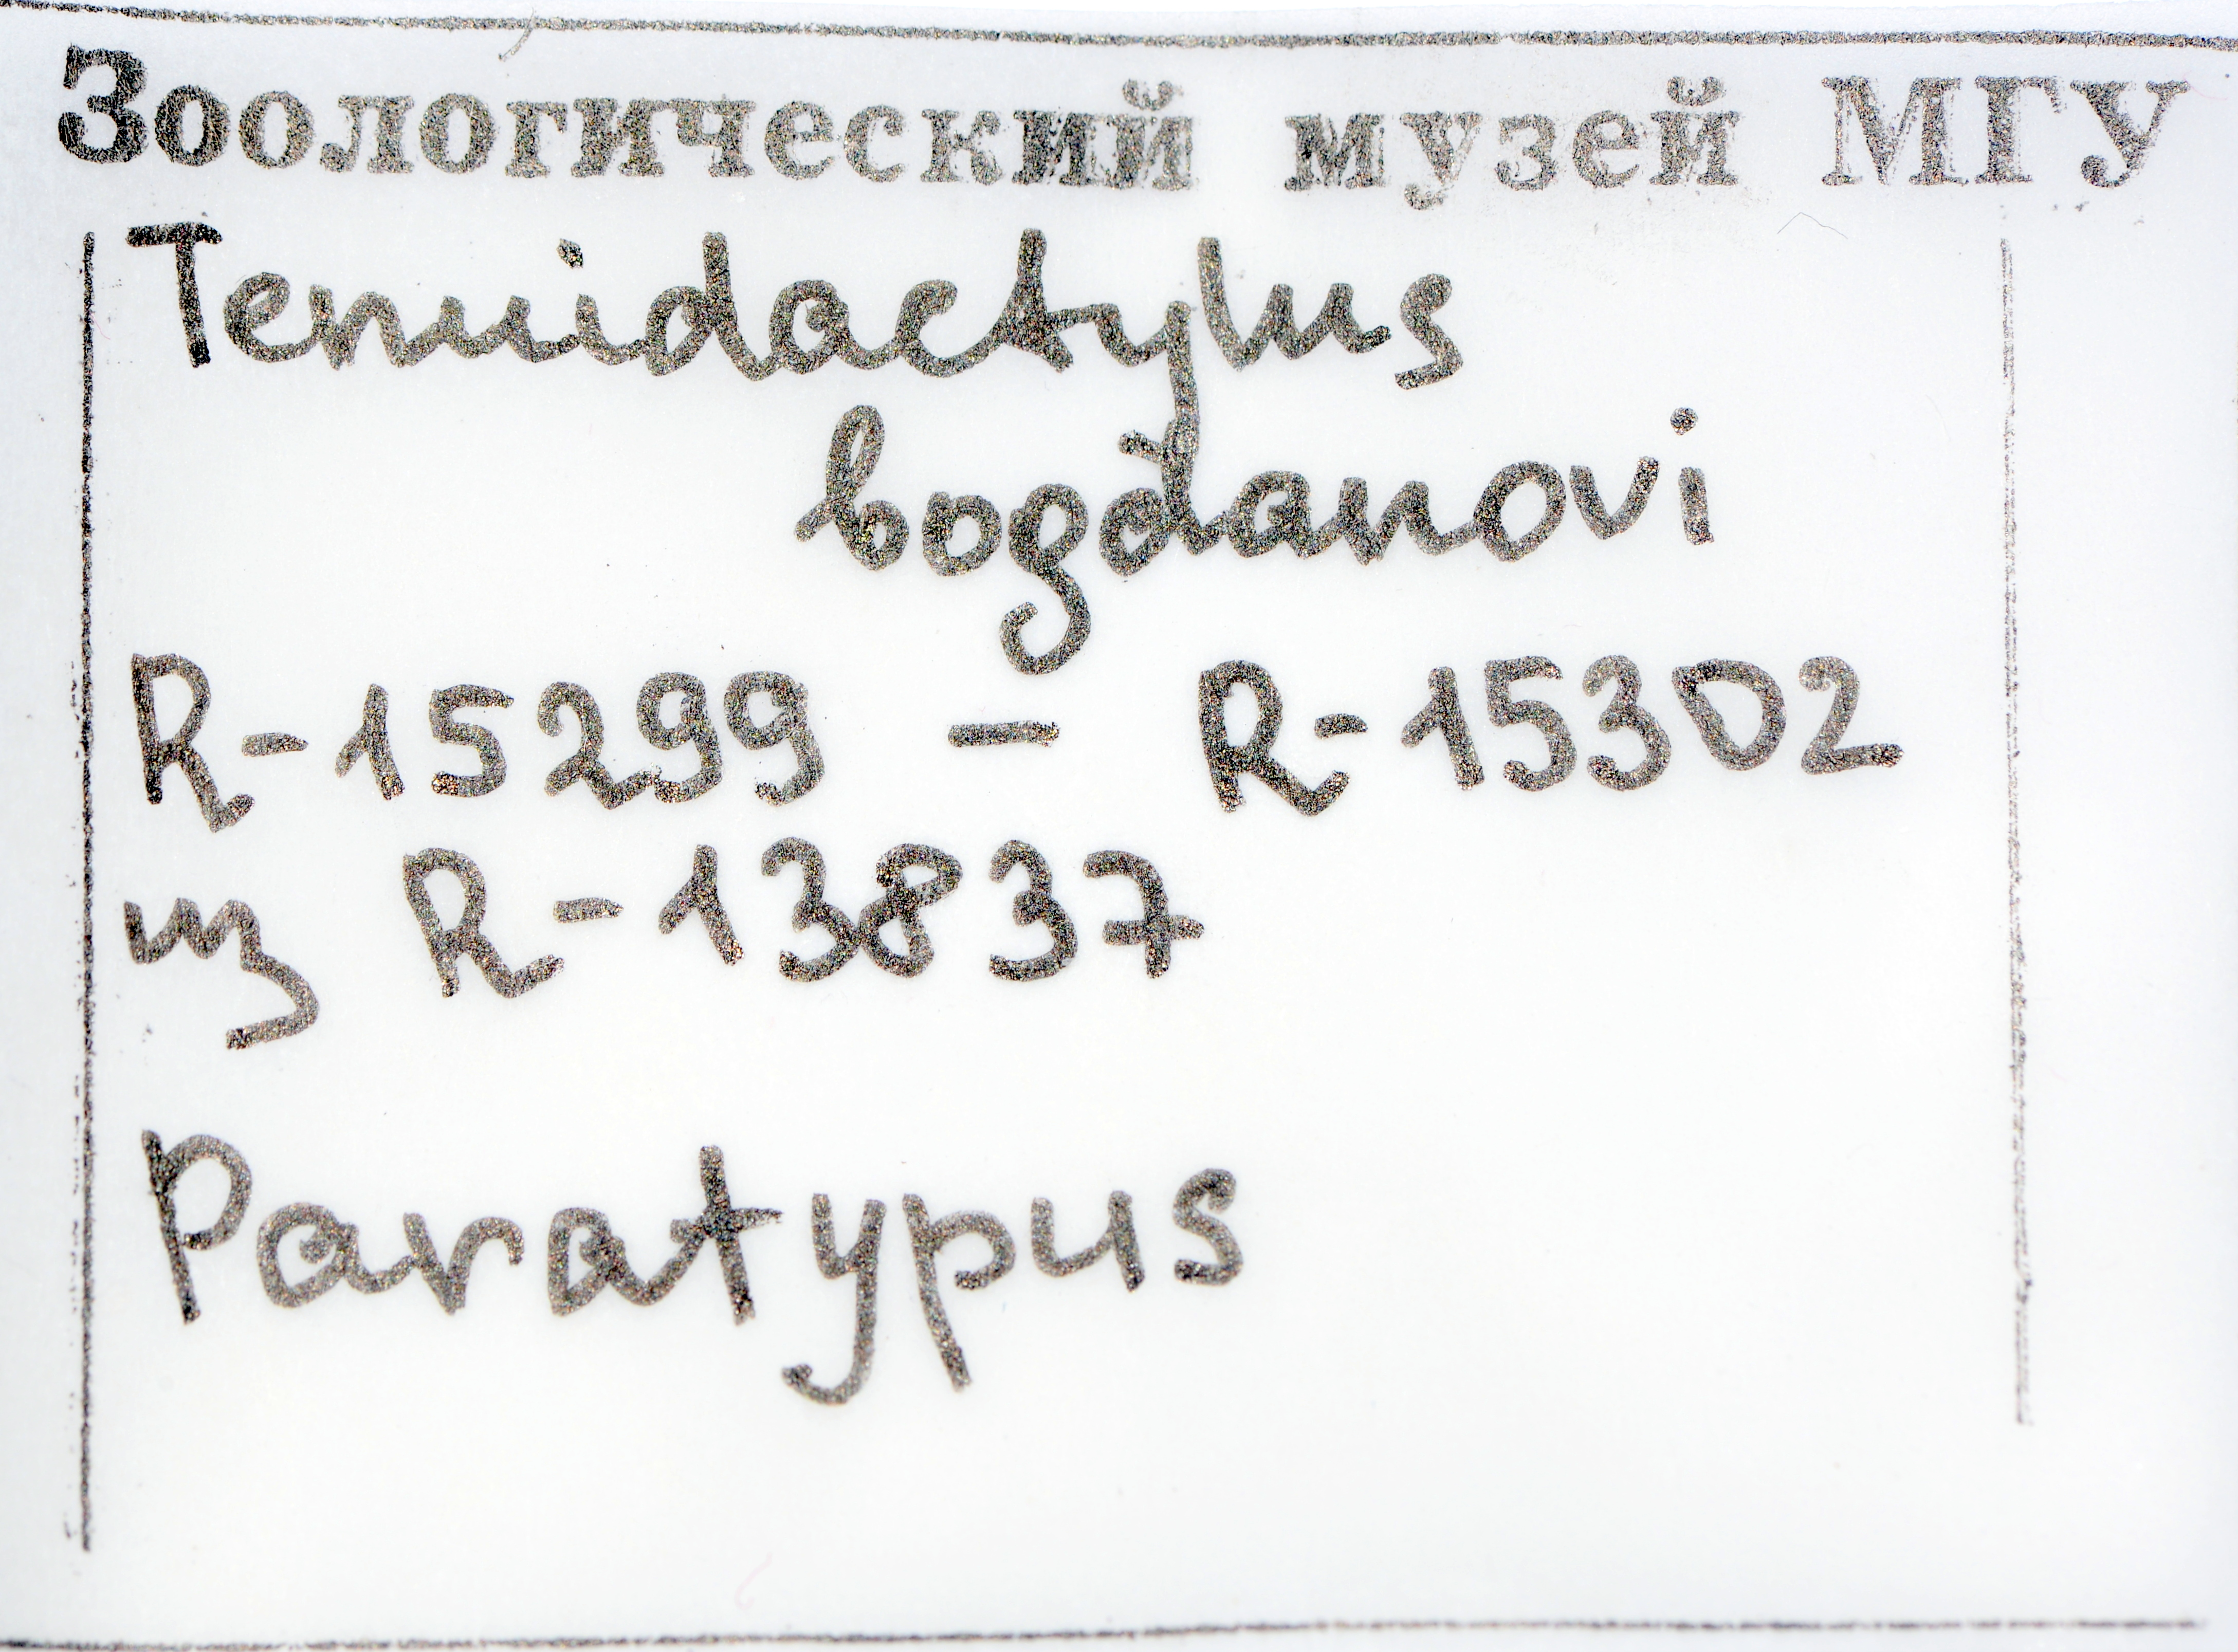 Зоологический музей МГУ
Tenuidactylus
bogdanovi
R-15299 — R-15302
из R-13837
Paratypus